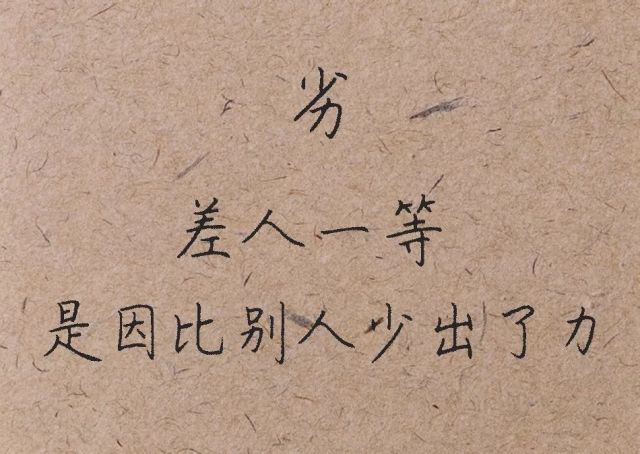 劣
差人一等
是因比别人少出了力